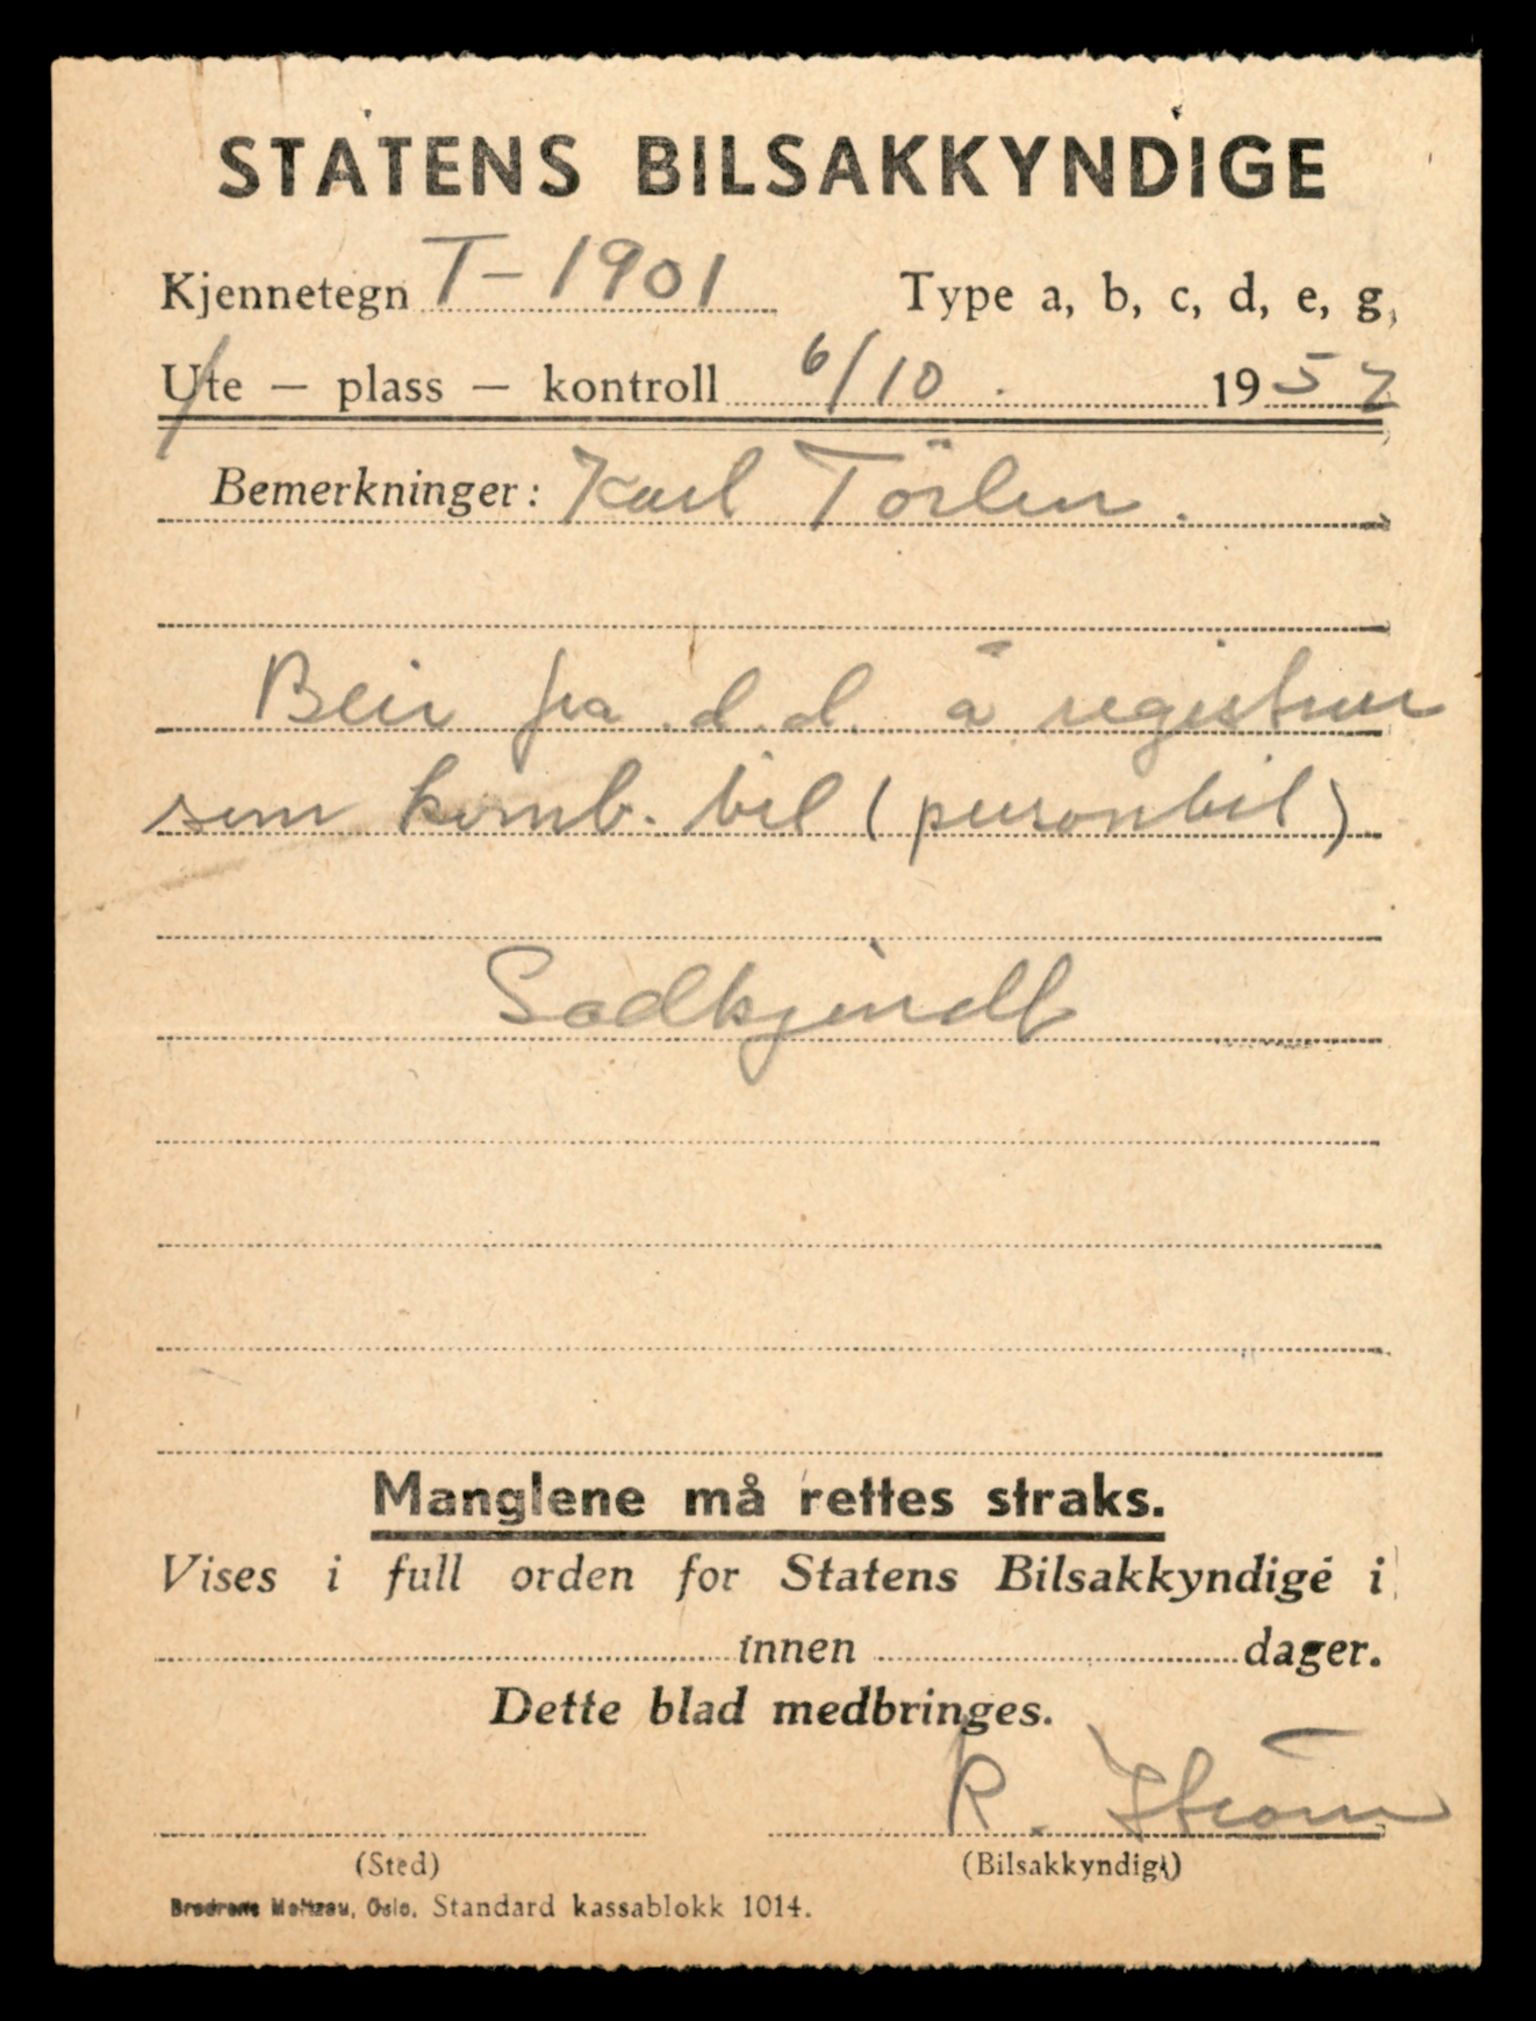 STATENS BILSAKKYNDIGE
Kjennetegn T-1901 Type a, b, c, d, e, g,
Ute — plass — kontroll 6/10. 1957
Bemerkninger: Karl Törlen.
Beir fra d.d. å registrer
som komb. bil (personbil)
Godkjendt
Manglene må rettes straks.
Vises i full orden for Statens Bilsakkyndige i
innen dager.
Dette blad medbringes.
R. Strøm
(Sted) (Bilsakkyndig)
Brødrene Meltzau, Oslo. Standard kassablokk 1014.